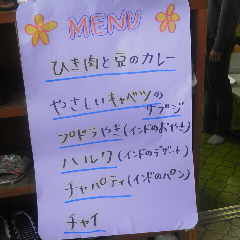 MENU
ひき肉と豆のカレー
やさしいキャベツの
サブジ
プドラやき(インドのおやき)
ハルワ(インドのデザート)
チャパティ(インドのパン)
チャイ